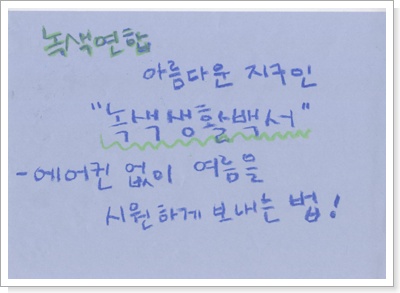 녹색연합
아름다운 지구인
"녹색생활백서"
-에어컨 없이 여름을
시원하게 보내는 법!